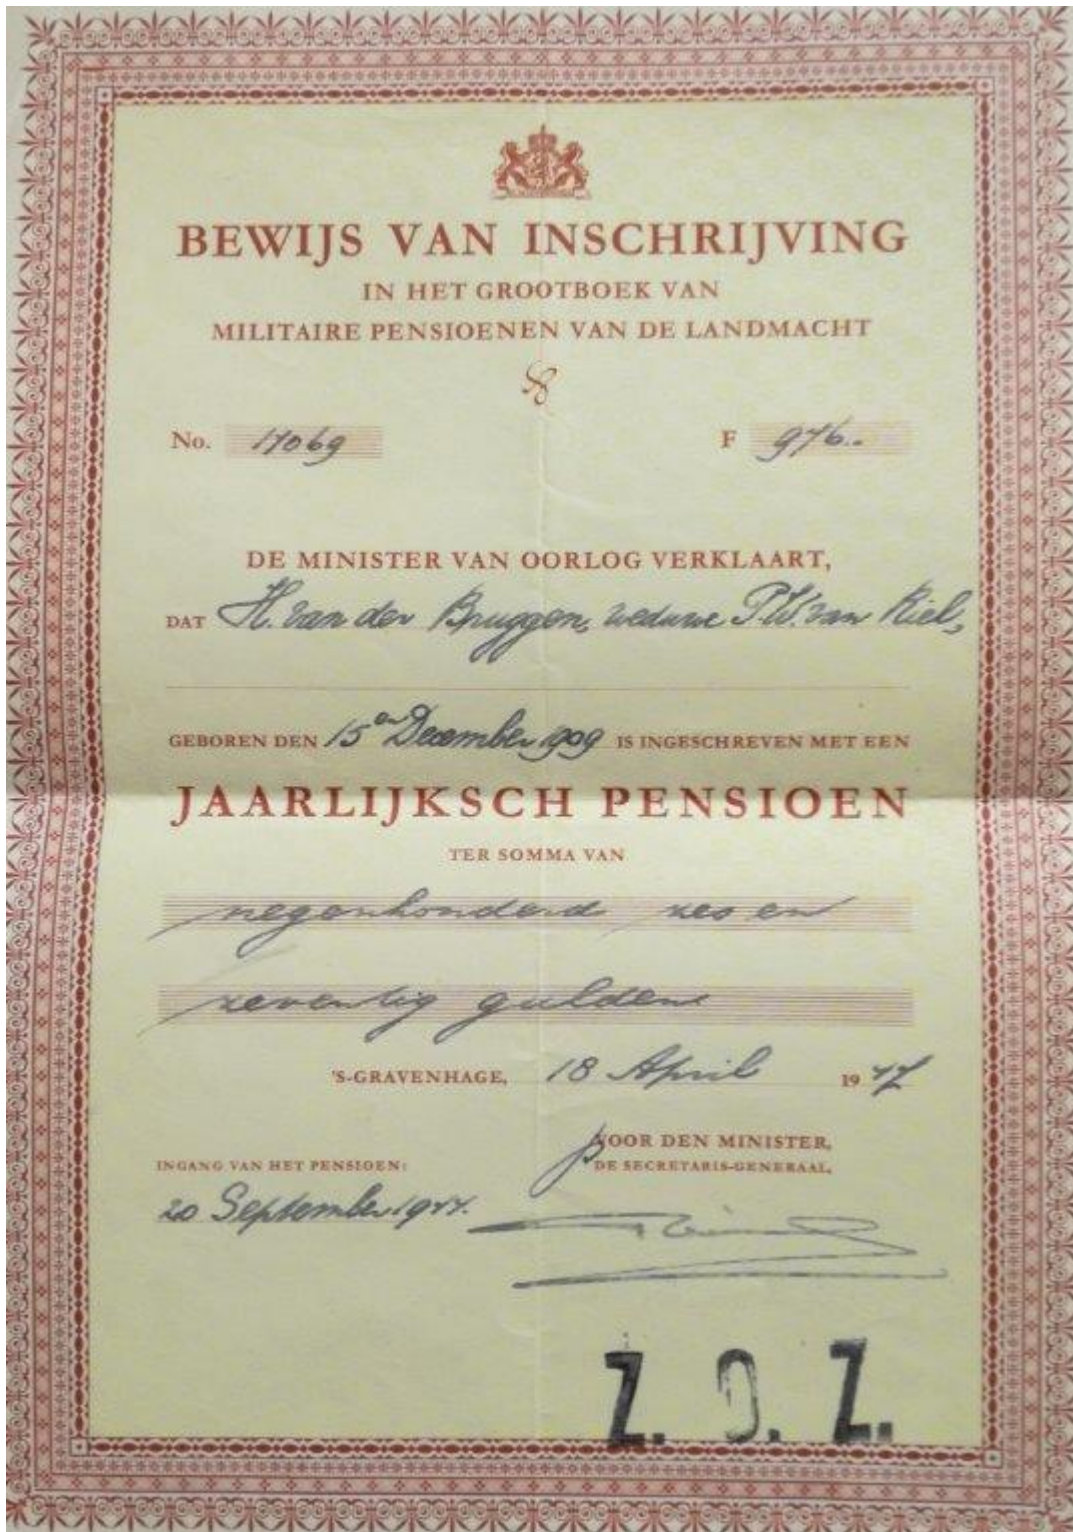 BEWIJS VAN INSCHRIJVING
IN HET GROOTBOEK VAN
MILITAIRE PENSIOENEN VAN DE LANDMACHT
No. 17069 F 976..
DE MINISTER VAN OORLOG VERKLAART,
DAT H. van der Bruggen, weduwe P.W. van Riel,
GEBOREN DEN 15en December 1909 IS INGESCHREVEN MET EEN
JAARLIJKSCH PENSIOEN
TER SOMMA VAN
negenhonderd zes en
zeventig gulden
'S-GRAVENHAGE, 18 April 1947
VOOR DEN MINISTER,
DE SECRETARIS-GENERAAL,
INGANG VAN HET PENSIOEN:
20 September 1944.
Z. O. Z.